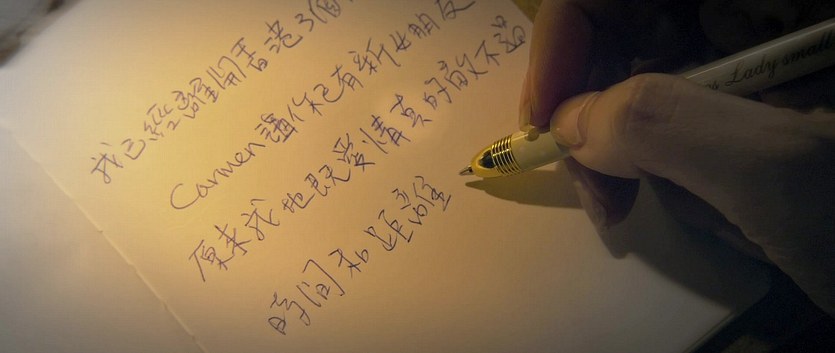 我已經離開香港3個
Carmen講你已有新女朋友
原來我哋既愛情真的敵不過
時間和距離
Lady small